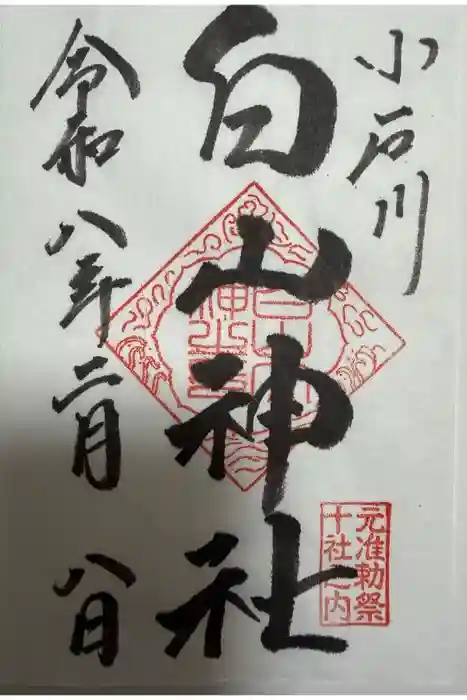 小石川
白山神社
令和八年二月八日
白山神社
元准勅祭
十社之内